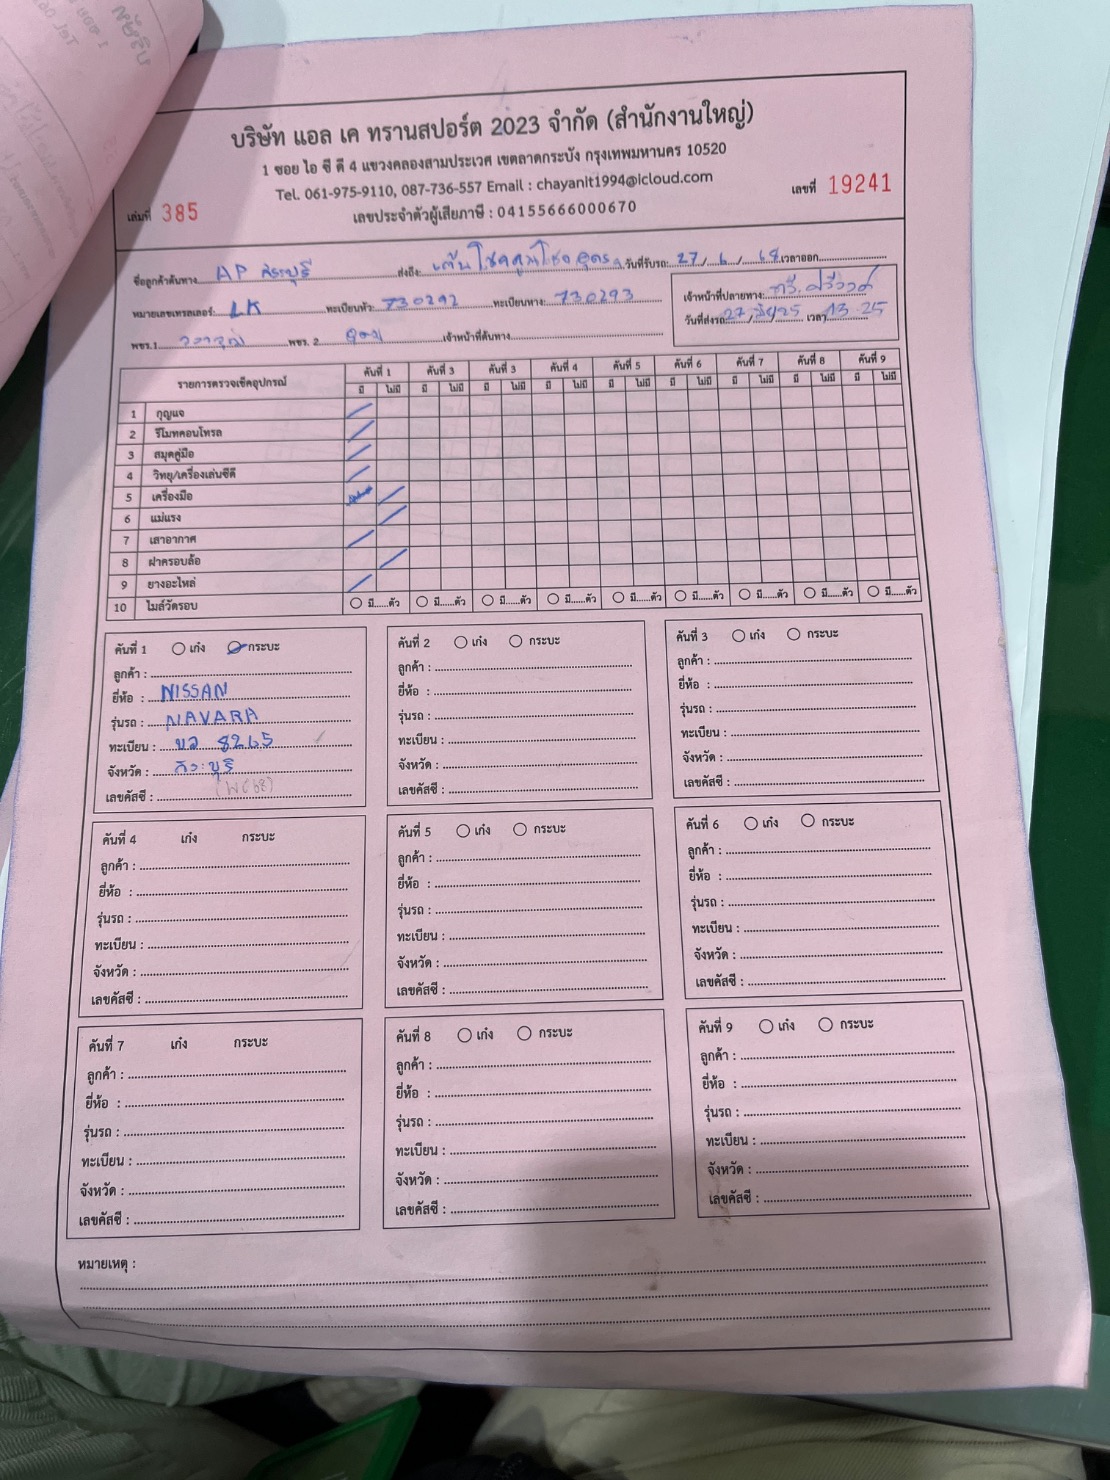 บริษัท แอล เค ทรานสปอร์ต 2023 จำกัด (สำนักงานใหญ่)
1 ซอย ไอ ซี ดี 4 แขวงคลองสามประเวศ เขตลาดกระบัง กรุงเทพมหานคร 10520
Tel. 061-975-9110, 087-736-557 Email : chayanit1994@icloud.com
เล่มที่ 385 เลขประจำตัวผู้เสียภาษี : 04155666000670 เลขที่ 19241
ชื่อลูกค้าต้นทาง AP สระบุรี ส่งถึง วันที่รับรถ: 27/6/68 เวลาออก
หมายเลขเทรลเลอร์: LK ทะเบียนหัว: 730292 ทะเบียนหาง: 730293 เจ้าหน้าที่ปลายทาง:
วันที่ส่งรถ 27 เวลา 13.25
พขร.1 พขร. 2 เจ้าหน้าที่ต้นทาง
รายการตรวจเช็คอุปกรณ์ คันที่ 1 คันที่ 3 คันที่ 3 คันที่ 4 คันที่ 5 คันที่ 6 คันที่ 7 คันที่ 8 คันที่ 9
มี ไม่มี มี ไม่มี มี ไม่มี มี ไม่มี มี ไม่มี มี ไม่มี มี ไม่มี มี ไม่มี มี ไม่มี
1 กุญแจ
2 รีโมทคอนโทรล
3 สมุดคู่มือ
4 วิทยุ/เครื่องเล่นซีดี
5 เครื่องมือ
6 แม่แรง
7 เสาอากาศ
8 ฝาครอบล้อ
9 ยางอะไหล่
10 ไมล์วัดรอบ มี......ตัว มี......ตัว มี......ตัว มี......ตัว มี......ตัว มี......ตัว มี......ตัว มี......ตัว มี......ตัว
คันที่ 1 เก๋ง กระบะ
ลูกค้า :
ยี่ห้อ : NISSAN
รุ่นรถ : NAVARA
ทะเบียน : 8265
จังหวัด :
เลขคัสซี :
คันที่ 2 เก๋ง กระบะ
ลูกค้า :
ยี่ห้อ :
รุ่นรถ :
ทะเบียน :
จังหวัด :
เลขคัสซี :
คันที่ 3 เก๋ง กระบะ
ลูกค้า :
ยี่ห้อ :
รุ่นรถ :
ทะเบียน :
จังหวัด :
เลขคัสซี :
คันที่ 4 เก๋ง กระบะ
ลูกค้า :
ยี่ห้อ :
รุ่นรถ :
ทะเบียน :
จังหวัด :
เลขคัสซี :
คันที่ 5 เก๋ง กระบะ
ลูกค้า :
ยี่ห้อ :
รุ่นรถ :
ทะเบียน :
จังหวัด :
เลขคัสซี :
คันที่ 6 เก๋ง กระบะ
ลูกค้า :
ยี่ห้อ :
รุ่นรถ :
ทะเบียน :
จังหวัด :
เลขคัสซี :
คันที่ 7 เก๋ง กระบะ
ลูกค้า :
ยี่ห้อ :
รุ่นรถ :
ทะเบียน :
จังหวัด :
เลขคัสซี :
คันที่ 8 เก๋ง กระบะ
ลูกค้า :
ยี่ห้อ :
รุ่นรถ :
ทะเบียน :
จังหวัด :
เลขคัสซี :
คันที่ 9 เก๋ง กระบะ
ลูกค้า :
ยี่ห้อ :
รุ่นรถ :
ทะเบียน :
จังหวัด :
เลขคัสซี :
หมายเหตุ :